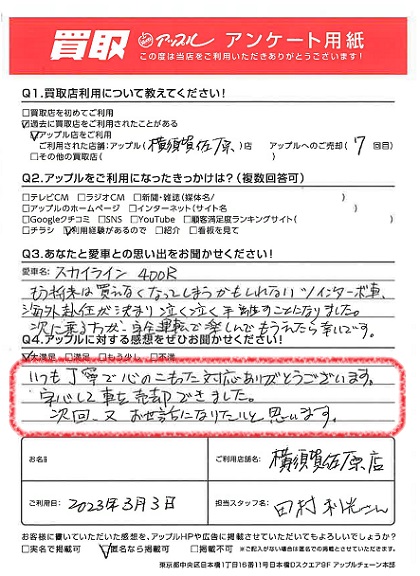 買取 アップル アンケート用紙
この度は当店をご利用いただきありがとうございます!
Q1.買取店利用について教えてください!
□買取店を初めてご利用
☑過去に買取店をご利用されたことがある
☑アップル店をご利用
ご利用された店舗:アップル( 横須賀佐原 )店 アップルへのご売却( 7 回目)
□その他の買取店( )
Q2.アップルをご利用になったきっかけは?(複数回答可)
□テレビCM □ラジオCM □新聞・雑誌(媒体名/ )
□アップルのホームページ □インターネット(サイト名 )
□Googleクチコミ □SNS □YouTube □顧客満足度ランキングサイト( )
□チラシ ☑利用経験があるので □紹介 □看板を見て
Q3.あなたと愛車との思い出をお聞かせください!
愛車名: スカイライン 400R
もう新車は買えなくなってしまうかもしれないツインターボ車、
海外赴任が決まり泣く泣く手放すことになりました。
次に乗る方が、安全運転で楽しんでもらえたら幸いです。
Q4.アップルに対する感想をぜひお聞かせください!
☑大満足 □満足 □もう少し □不満
いつも丁寧で心のこもった対応ありがとうございます。
安心して車を売却できました。
次回、又お世話になりたいと思います。
お名前 ご利用店舗名: 横須賀佐原店
ご利用日: 2023年3月3日 担当スタッフ名: 田村
お客様に書いていただいた感想を、アップルHPや広告に掲載させていただいてもよろしいでしょうか?
□実名で掲載可 ☑匿名なら掲載可 □掲載不可 ※ご記入がない場合は匿名での掲載とさせていただきます。
東京都中央区日本橋1丁目16番11号日本橋Dスクエア9F アップルチェーン本部